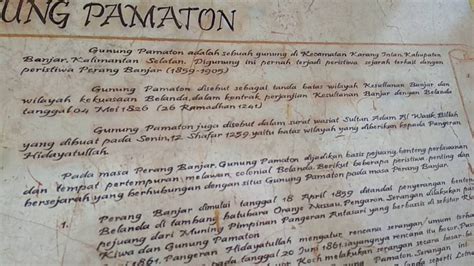 UNG PAMATON
Gunung Pamaton adalah sebuah gunung di Kecamatan Karang Intan, Kabupaten
Banjar, Kalimantan Selatan. Digunung ini pernah terjadi peristiwa sejarah terkait dengan
peristiwa Perang Banjar (1859-1905)
Gunung Pamaton disebut sebagai tanda batas wilayah Kesultanan Banjar dan
wilayah kekuasaan Belanda, dalam kontrak perjanjian Kesultanan Banjar dengan Belanda
tanggal 04 Mei 1826 (26 Ramadhan 1241)
Gunung Pamaton juga disebut dalam surat wasiat Sultan Adam Al Wasik Billah
yang dibuat pada Senin, 12 Shafar 1259 yaitu batas wilayah yang diberikan kepada Pangeran
Hidayatullah.
Pada masa Perang Banjar, Gunung Pamaton dijadikan basis pejuang, benteng perlawanan
dan tempat pertempuran melawan colonial Belanda. Berikut beberapa peristiwa penting dan
bersejarah yang berhubungan dengan situs Gunung Pamaton pada masa Perang Banjar.
1. Perang Banjar dimulai tanggal 18 April 1899 ditandai penyerangan benteng
Belanda di tambang batubara Orange Nassau, Pengaron. Serangan dilakukan
pejuang dari Muning Pimpinan Pangeran Antasari yang berbasis di sekitar
Kiwa dan Gunung Pamaton
1861, Pangeran Hidayatullah mengatur rencana serangan umum
pada tanggal 20 Juni 1861, sayangnya rencana itu bocor
Koch melakukan serangan secara